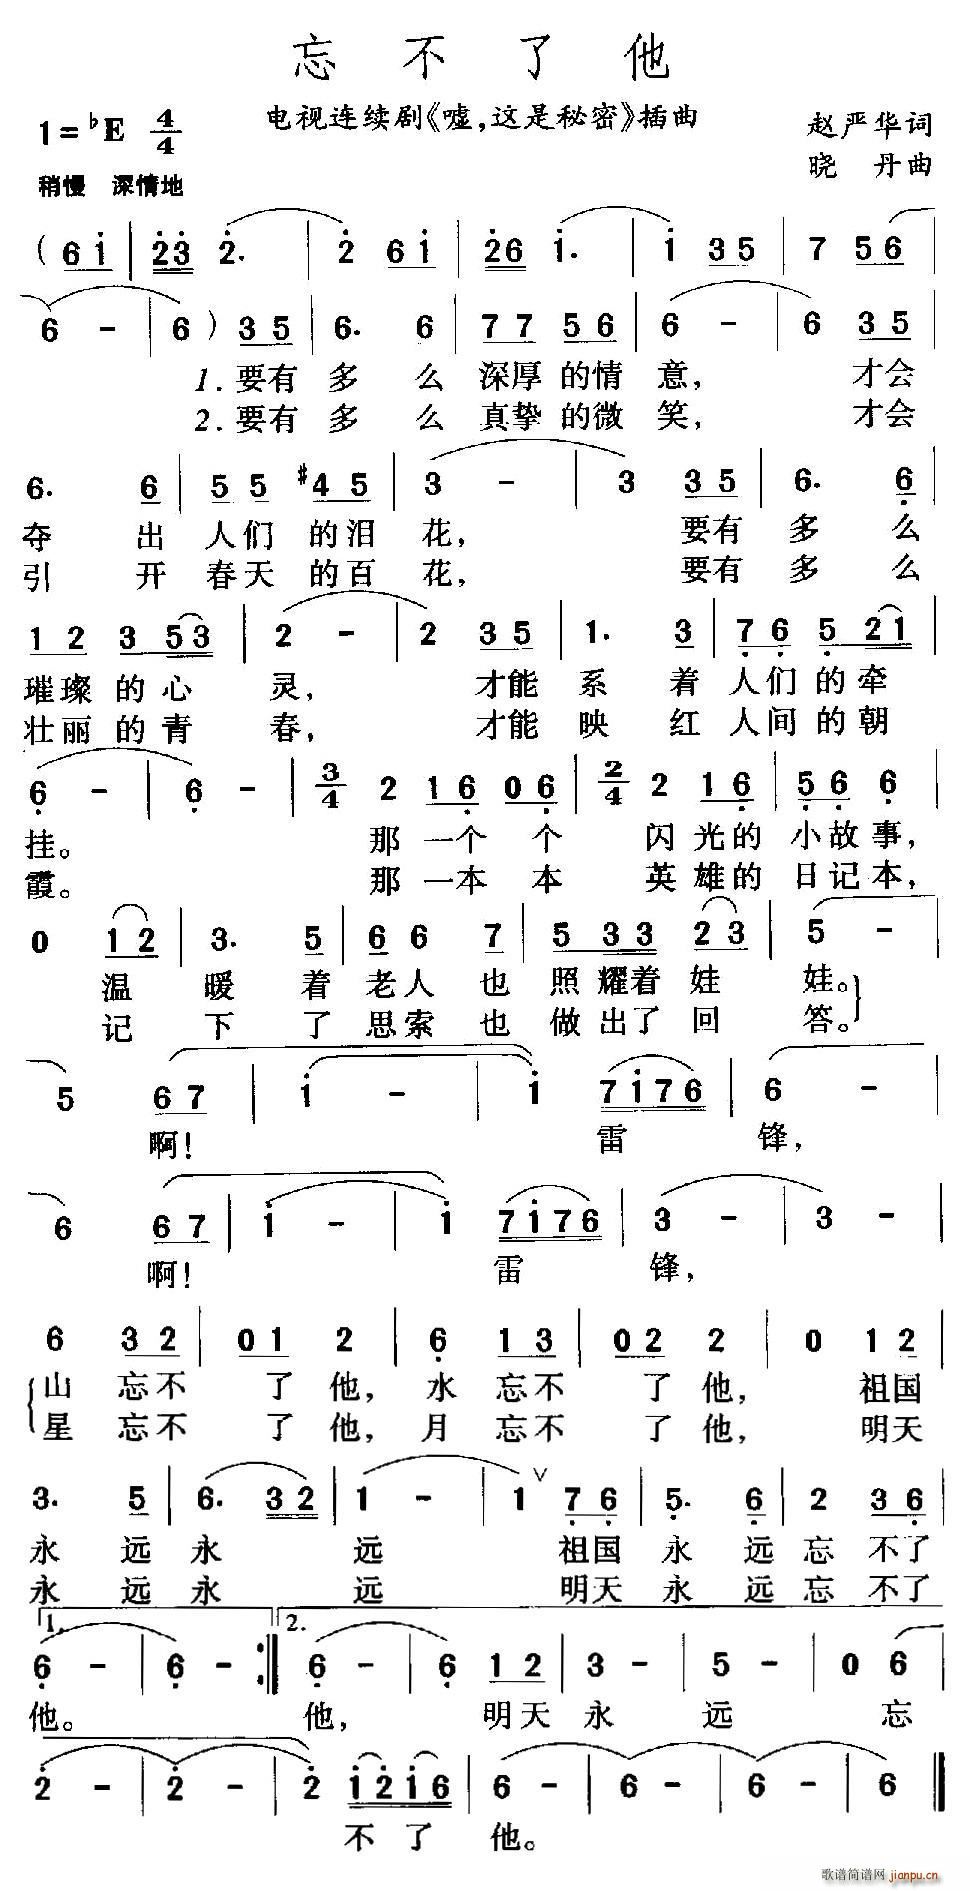 忘不了他
电视连续剧《嘘，这是秘密》插曲
1=♭E 4/4
赵严华词
晓丹曲
稍慢 深情地
( 6 i | 2 3 2. | 2 6 i | 2 6 i. | i 3 5 | 7 5 6 |
6 - | 6 ) 3 5 | 6. 6 | 7 7 5 6 | 6 - | 6 3 5 |
1.要有 多 么 深厚的情 意， 才会
2.要有 多 么 真挚的微 笑， 才会
6. 6 | 5 5 #4 5 | 3 - | 3 3 5 | 6. 6 |
夺 出 人们 的泪 花， 要有 多 么
引 开 春天 的百 花， 要有 多 么
1 2 3 5 3 | 2 - | 2 3 5 | 1. 3 | 7 6 5 2 1 |
璀璨的心 灵， 才能 系 着 人们的牵
壮丽的青 春， 才能 映 红 人间的朝
6 - | 6 - | 3/4 2 1 6 0 6 | 2/4 2 1 6 | 5 6 6 |
挂。 那 一个 个 闪 光的 小故事，
霞。 那 一本 本 英 雄的 日记本，
0 1 2 | 3. 5 | 6 6 7 | 5 3 3 2 3 | 5 -
温 暖 着 老人 也 照耀着娃 娃。
记 下 了 思索 也 做出了回 答。
5 6 7 | i - | i 7 i 7 6 | 6 -
啊！ 雷 锋，
6 6 7 | i - | i 7 i 7 6 | 3 - | 3 - |
啊！ 雷 锋，
6 3 2 | 0 1 2 | 6 1 3 | 0 2 2 | 0 1 2 |
山 忘不 了 他， 水 忘不 了 他， 祖国
星 忘不 了 他， 月 忘不 了 他， 明天
3. 5 | 6. 3 2 | 1 - | 1 ∨ 7 6 | 5. 6 | 2 3 6 |
永 远 永 远 祖国 永 远 忘 不了
永 远 永 远 明天 永 远 忘 不了
1. 2.
6 - | 6 - :‖ 6 - | 6 1 2 | 3 - | 5 - | 0 6 |
他。 他， 明天 永 远 忘
2 - | 2 - | 2 i 2 i 6 | 6 - | 6 - | 6 - | 6 ‖
不 了 他。
歌谱简谱网 jianpu.cn